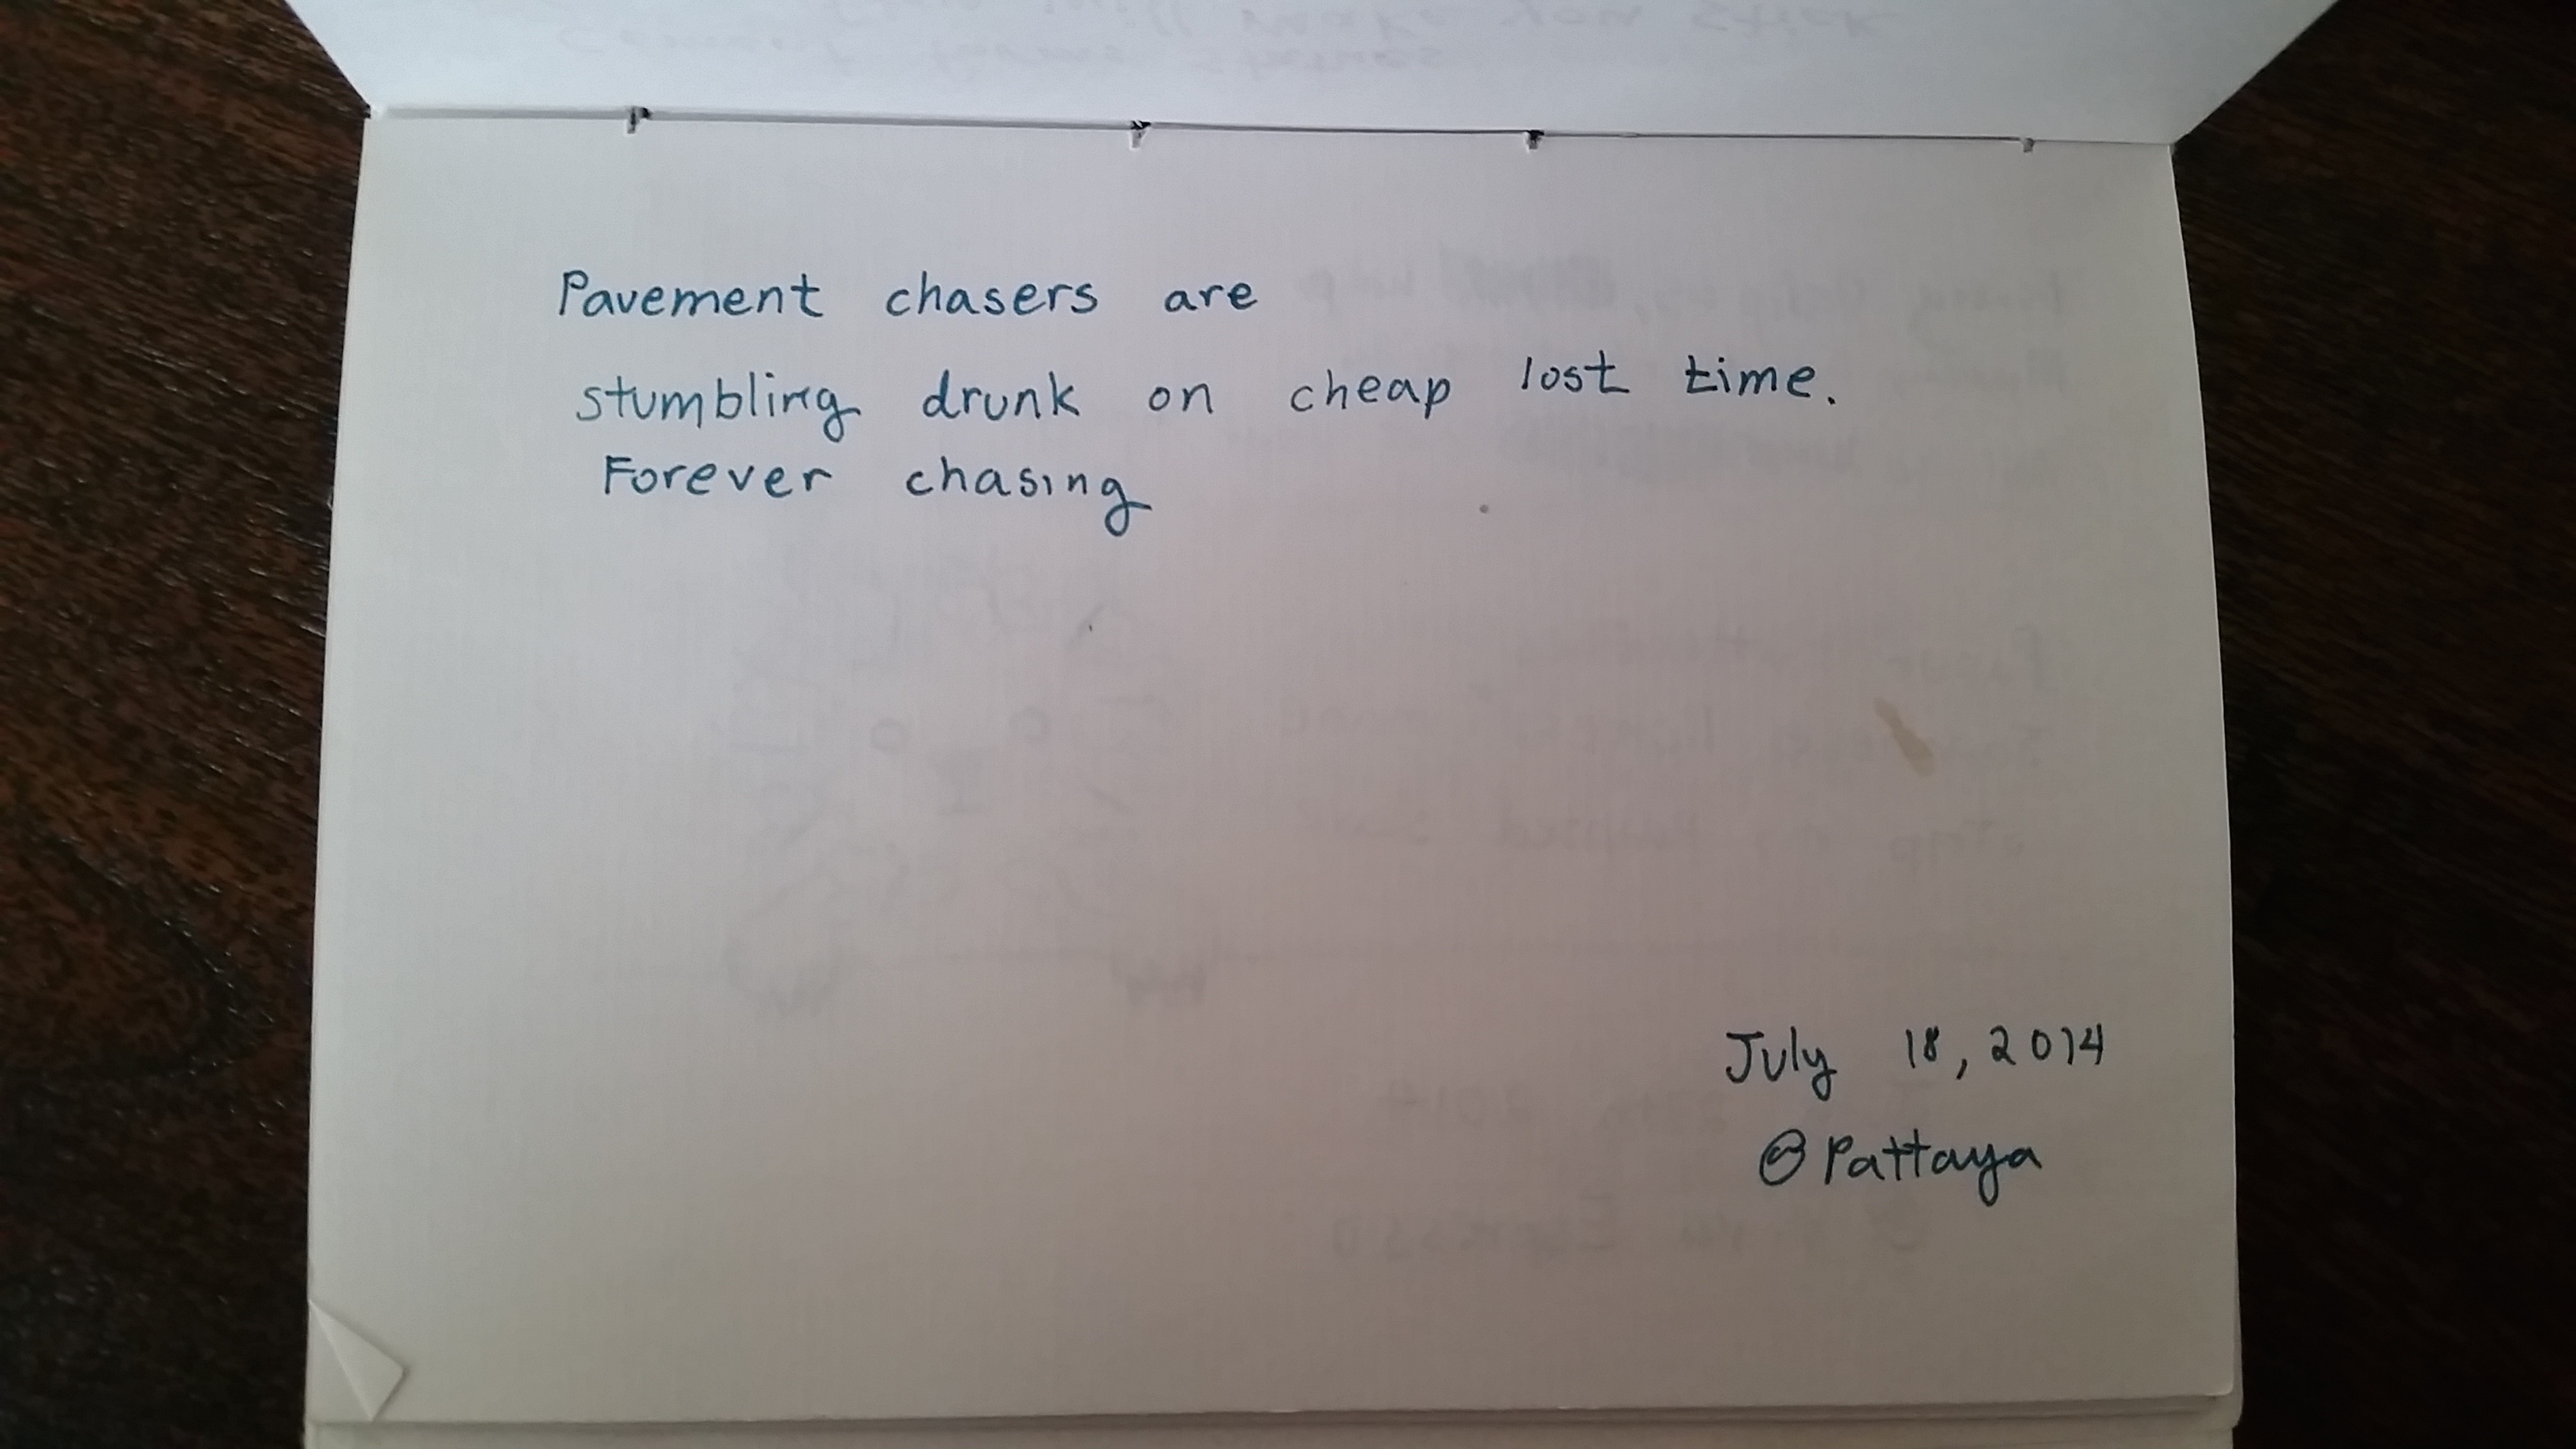 Pavement chasers are
stumbling drunk on cheap lost time.
Forever chasing
July 18, 2014
@ Pattaya